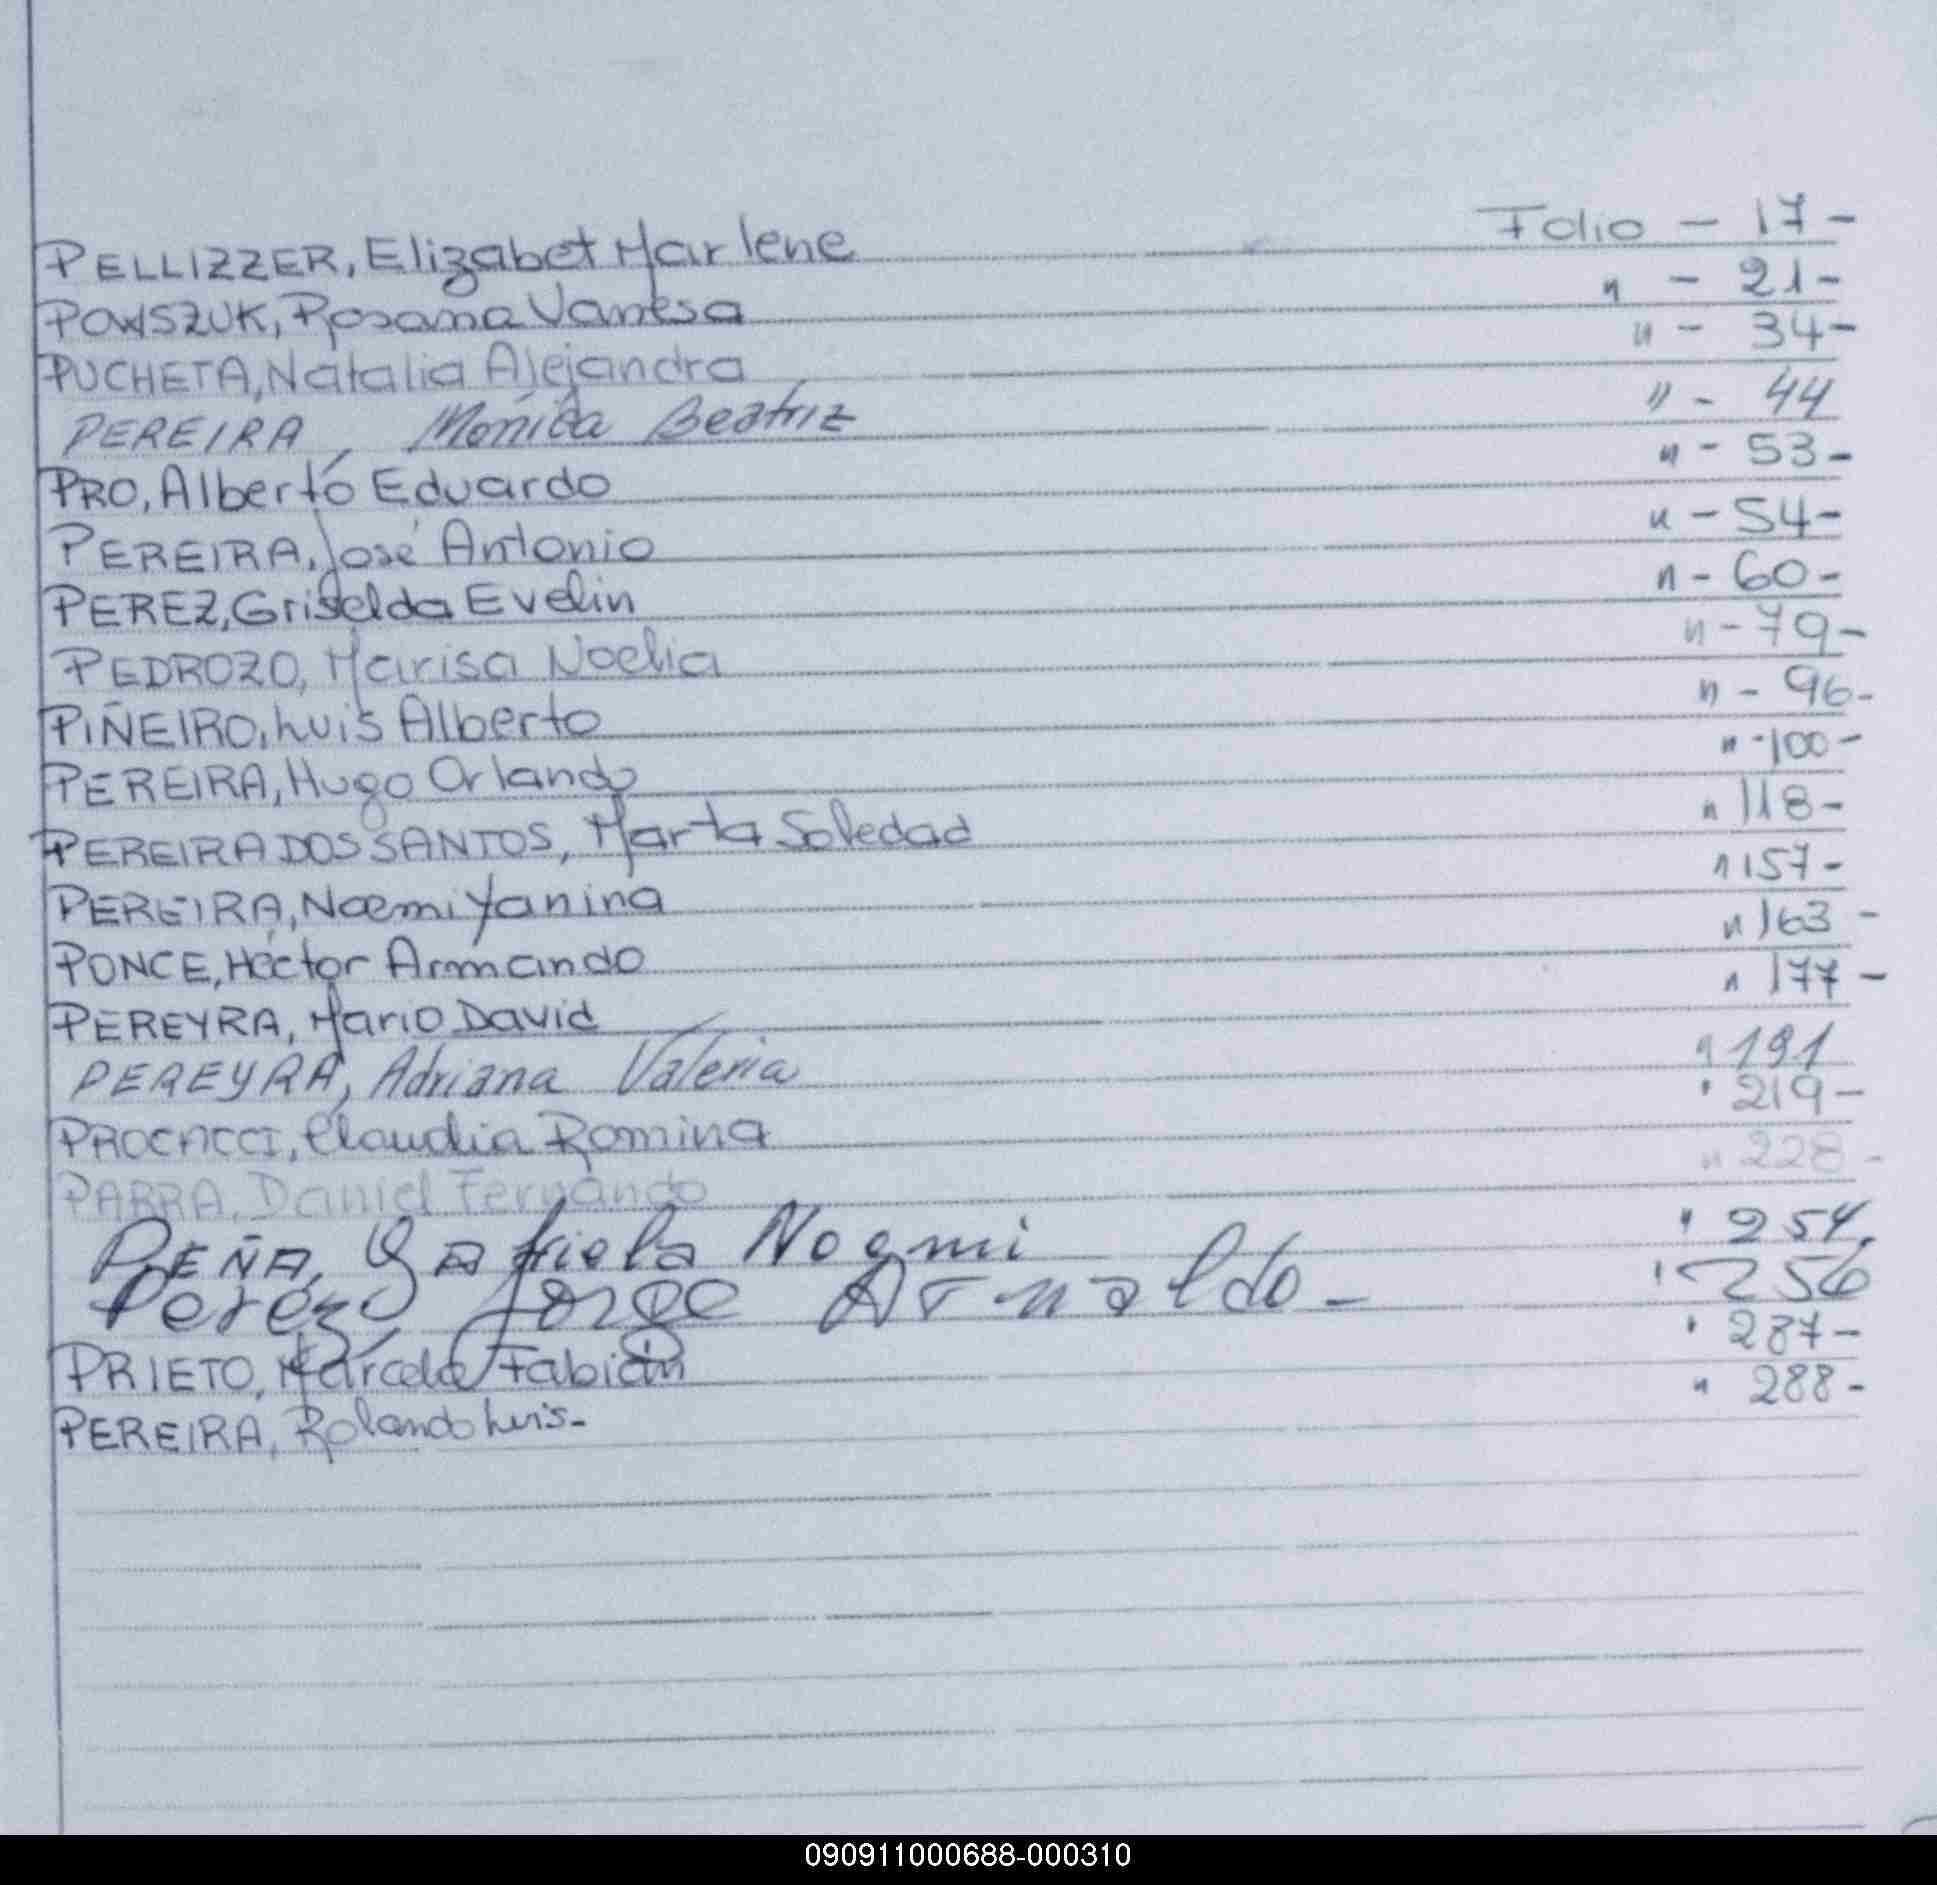 PELLIZZER, Elizabet Marlene Folio - 17 -
POWSZUK, Rosana Vanesa " - 21 -
PUCHETA, Natalia Alejandra " - 34 -
PEREIRA, Monica Beatriz " - 44
PRO, Alberto Eduardo " - 53 -
PEREIRA, José Antonio " - 54 -
PEREZ, Griselda Evelin " - 60 -
PEDROZO, Marisa Noelia " - 79 -
PIÑEIRO, Luis Alberto " - 96 -
PEREIRA, Hugo Orlando " - 100 -
PEREIRA DOS SANTOS, Marta Soledad " 118 -
PEREIRA, Noemi Yanina " 157 -
PONCE, Héctor Armando " 163 -
PEREYRA, Mario David " 177 -
PEREYRA, Adriana Valeria " 191
PROCACCI, Claudia Romina " 219 -
PARRA, Daniel Fernando " 228 -
PEÑA, Gabriela Noemi " 254.
Perez, Jorge Arnaldo - " 256
PRIETO, Marcelo Fabián " 287 -
PEREIRA, Rolando Luis - " 288 -
090911000688-000310